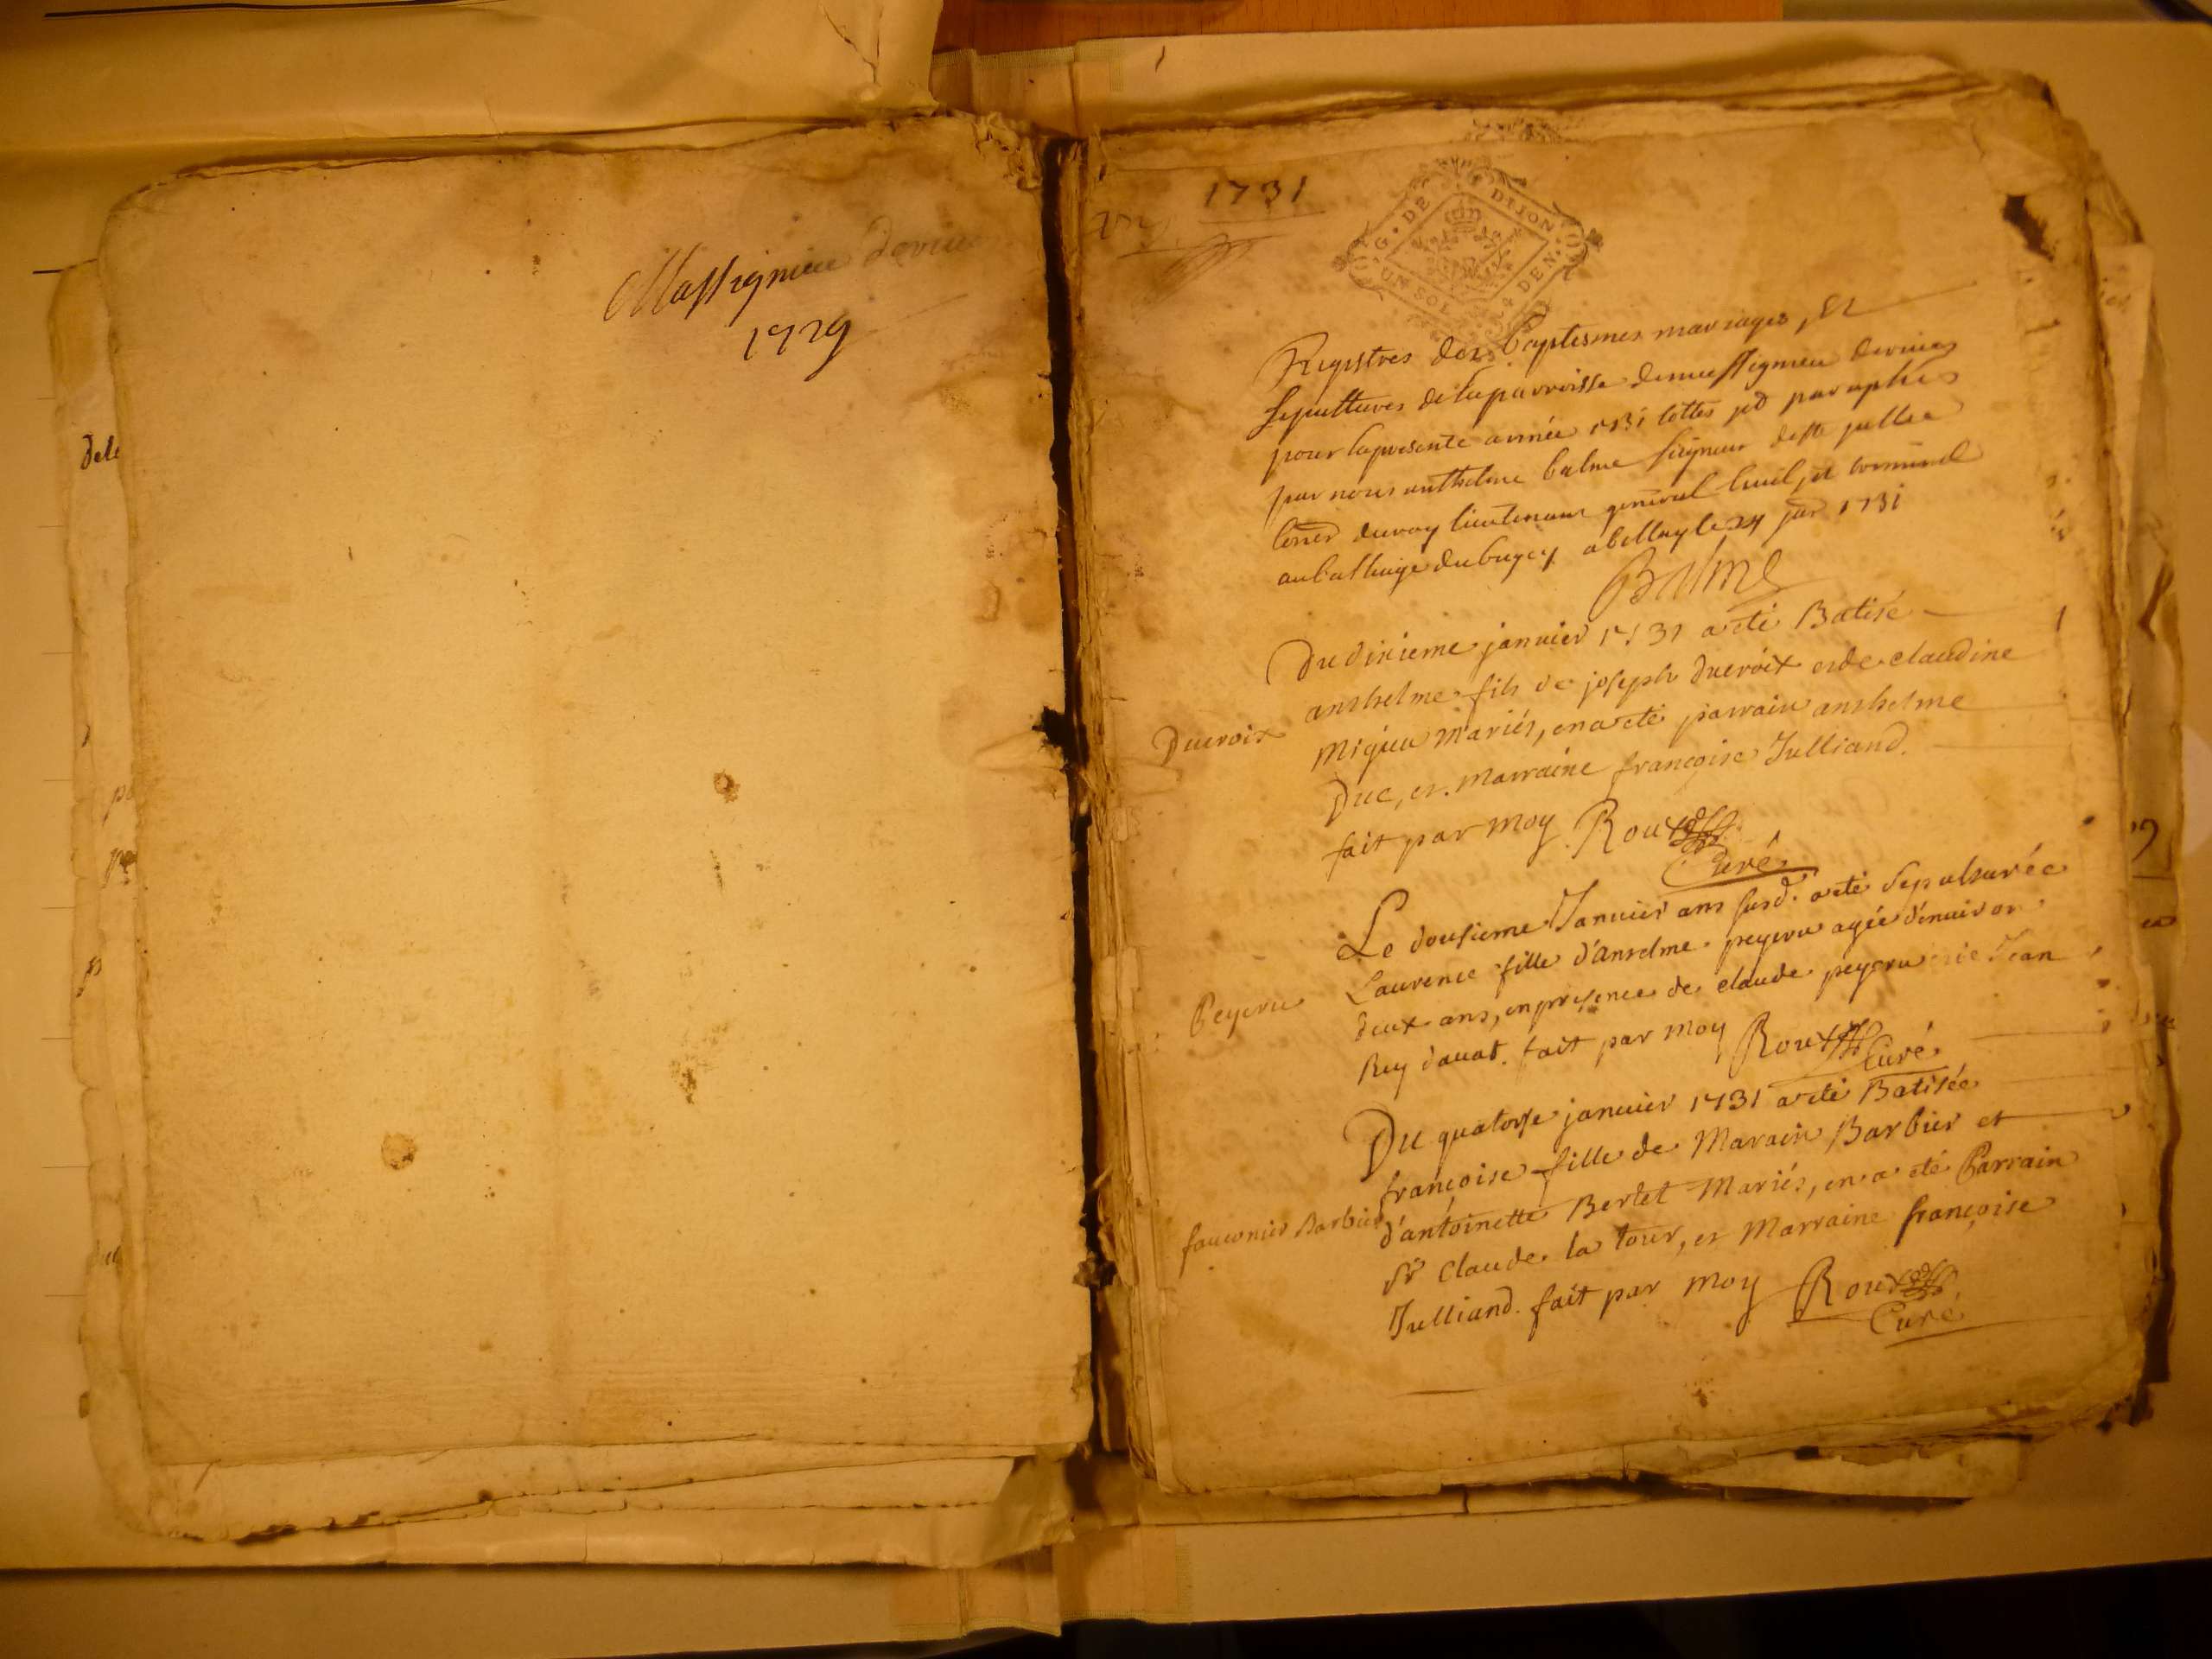 Massignieu
1729
1731
G. DE DIJON
UN SOL 4 DEN.
Registres des baptesmes mariages, Et
sepultures de la parroisse de massignieu de rives
pour la presente année 1731 cottés et paraphés
par nous anthelme balme seigneur de ste jullie
coner du roy lieutenant general civil, et criminel
au bailliage du bugey a belley le 24 jer 1731
Balme
Du dixieme janvier 1731 a eté Batisé
Ducroix
anthelme fils de joseph Ducroix et de claudine
Migieu mariés, en a eté parrain anthelme
Duc, et marraine francoise Julliand.
fait par moy Roux
Curé
Le dousieme Janvier ans susd. a eté sepulturée
Peyeru
Laurence fille d'Anselme peyeru agée d'environ
deux ans, en presence de claude peyeru Jean
Rey davat. fait par moy Roux
Curé
Du quatorse janvier 1731 a eté Batisée
françoise fille de Marain Barbier et
fauconnier Barbier
d'antoinette Bertet Mariés, en a eté Parrain
sr Claude la tour, et Marraine françoise
Julliand. fait par moy Roux
Curé